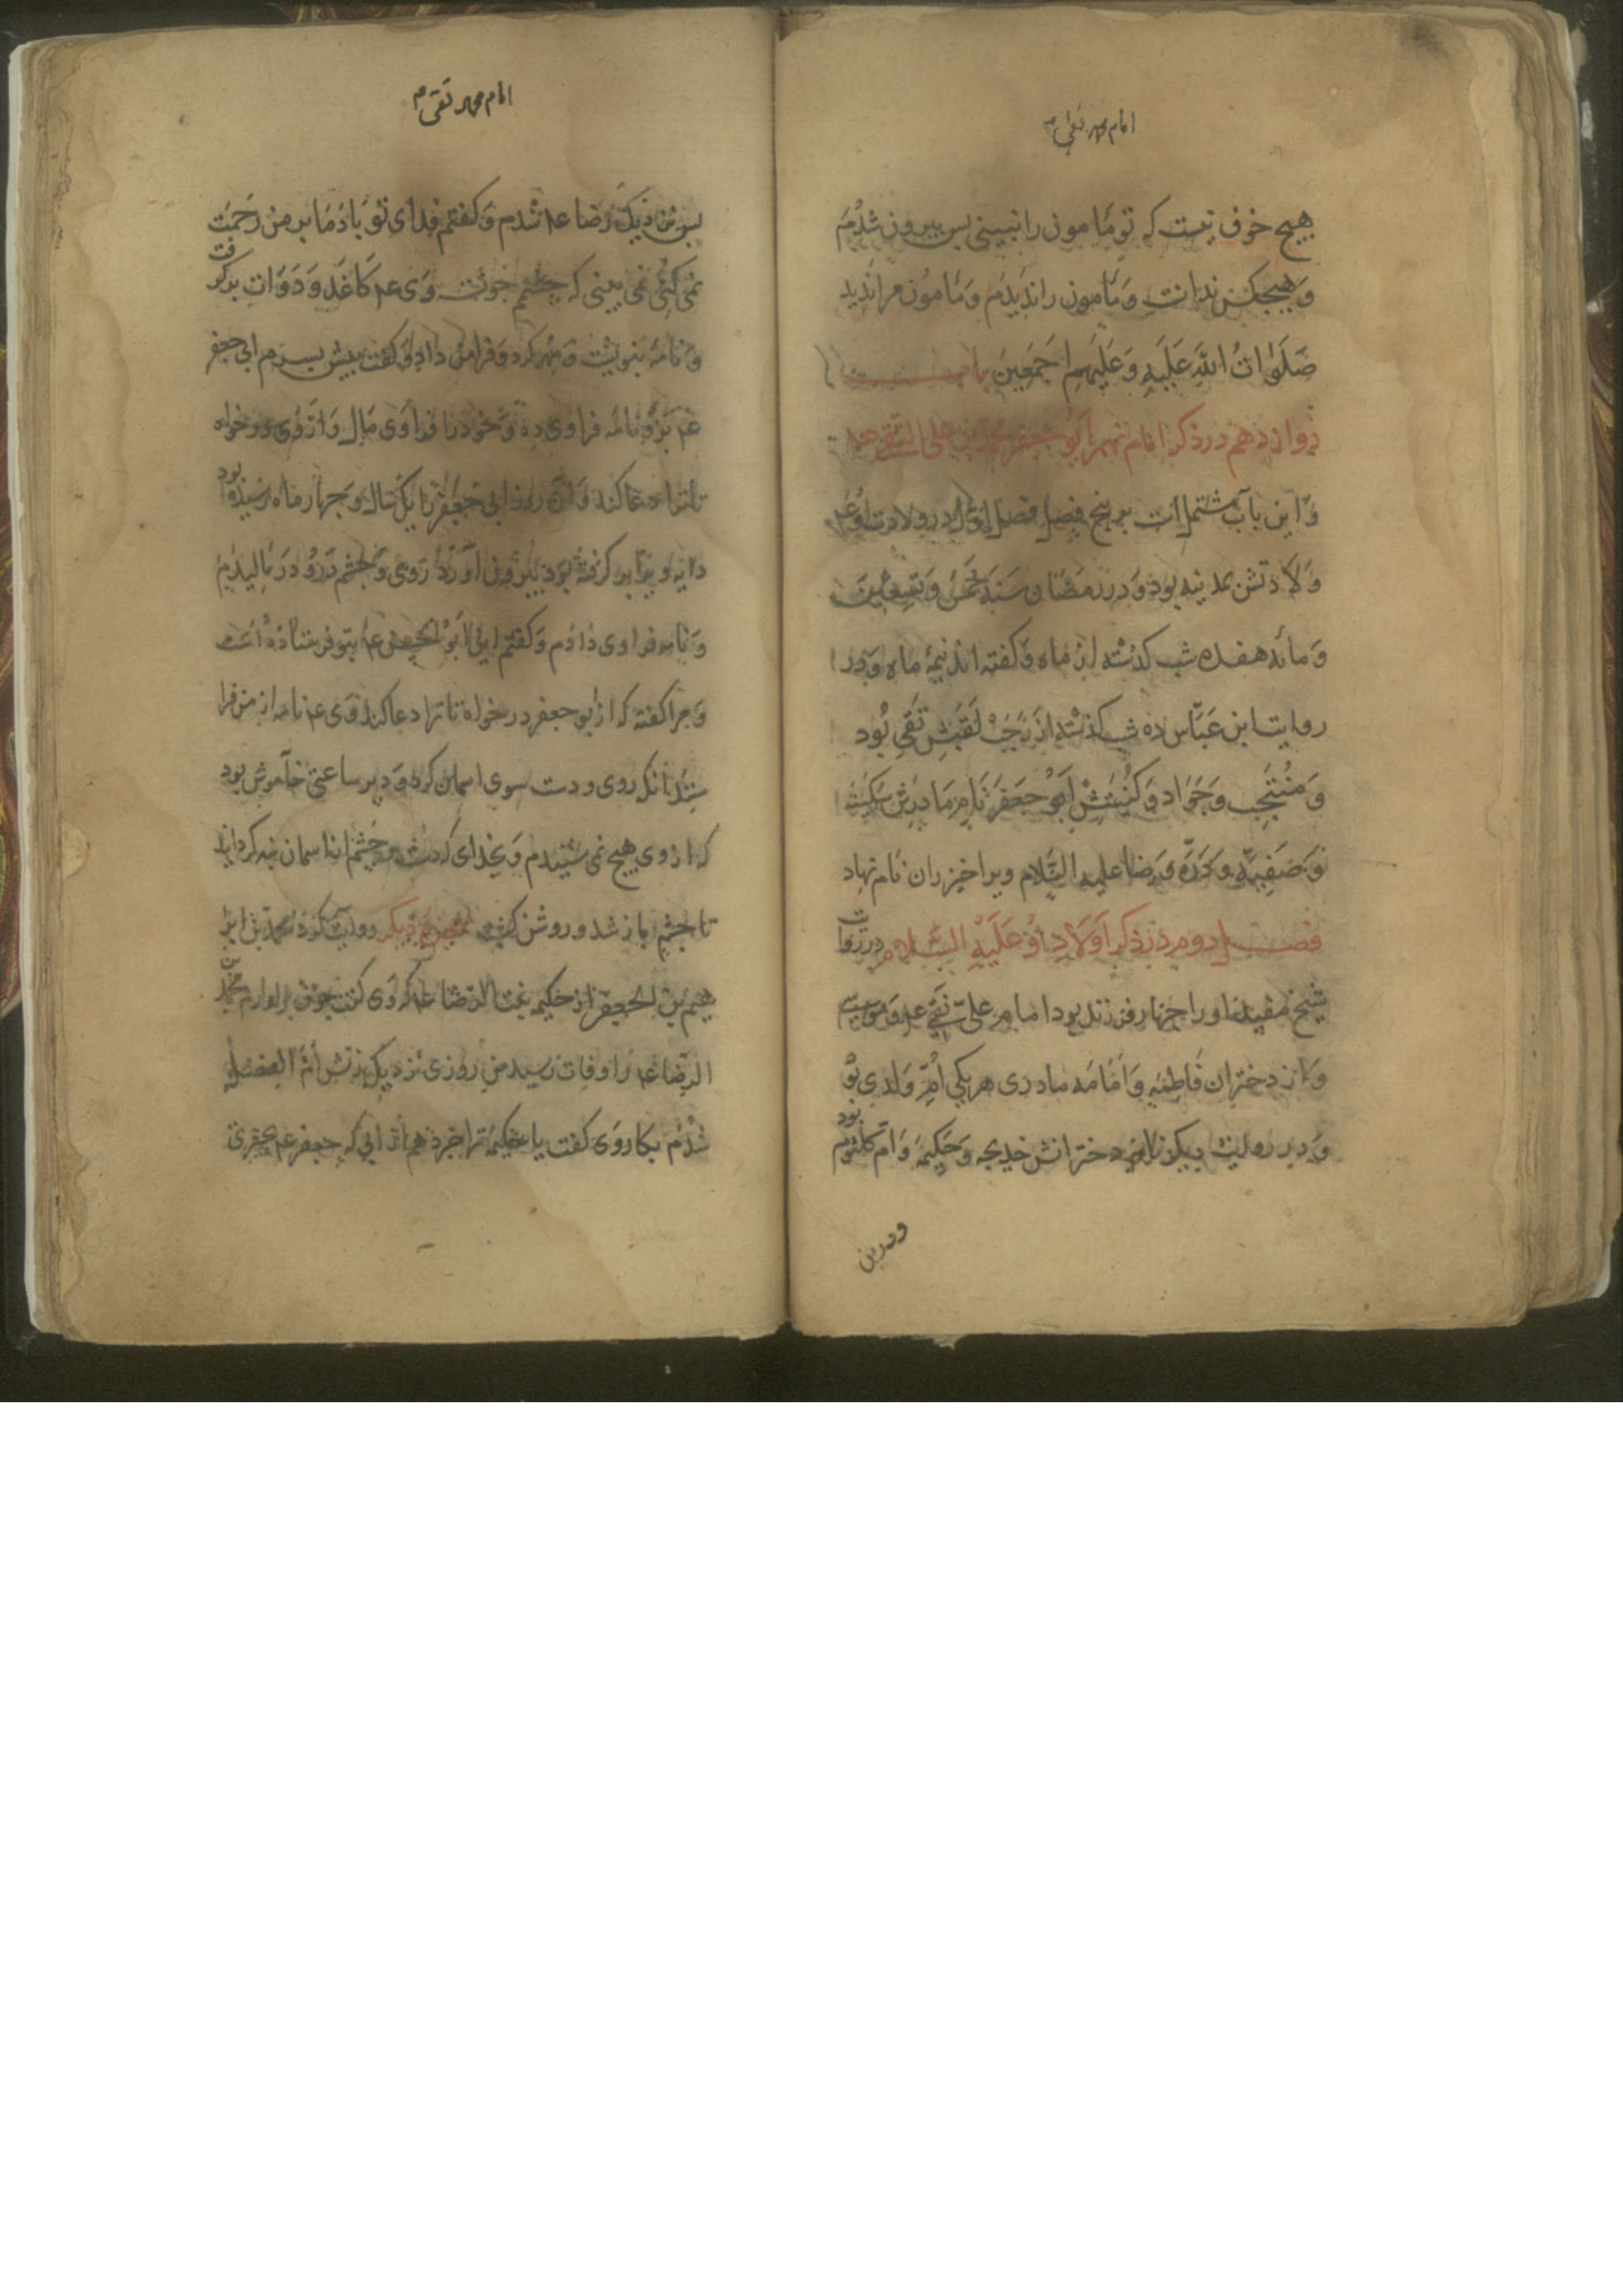 امام محمد تقی
هیچ خوف نیست که تو مامون را نبینی بس بیرون شدم
و هیچکس ندانست و مامون را ندیدم و مامون مرا ندید
صَلَوَاتُ اللهِ عَلَيهِ وَعَلَيهِم اَجمَعِين باب
دوازدهم در ذکر امام نهم ابو جعفر محمد بن علی التقی عم
و این باب مشتمل است بر پنج فصل فصل اول در ولادت او عم
ولادتش بمدینه بود و در رمضان سنه خمس و تسعین
و مائه هفده شب کذشته از ماه و کفته اند نیمه ماه و در
روایت ابن عَبّاس ده شب کذشته از رجب لَقَبَش تقی بُود
و مُنتَجب و جَوَاد و کُنیَتش ابو جعفر نام مادرش سَکِینه
وَ دُرَّه و رضا علیه السَّلام ویرا خیزران نام نهاد
فصل دوم در ذکر اَولادِ اوُ عَلَیهِ السَّلام در روایت
شیخ مفید او را چهار فرزند بود امام علی نقی عم و موسی
و از دختران فاطمه و امامه مادری هر یکی اُمّ وَلدی بود
و در روایت دیکر نام دخترانش خدیجه و حکیمه و ام کلثوم بود
و درین
امام محمد تقی م
بس نزدیک رضا عم شدم و کفتم فدای تو باد ما بر من رَحمَت
نمی کنی نمی بینی که چشمم وی عم کاغذ و دوات برکرفت
و نامه بنوشت و مهر کرد و فرا من داد و کفت پیش پسرم ابی جعفر
عم برو نامه فرا وی ده و خود را فرا وی مال و از وی درخواه
تا ترا دعا کند و آن روز ابی جعفر را یک سال و چهار ماه رسیده بود
دایه ویرا بر کرفته بود بیرون آورد روی و چشم درو در مالیدم
و نامه فرا وی دادم و کفتم این ابو الحسن عم بتو فرستاده است
و مرا کفته که از ابو جعفر درخواه تا ترا دعا کند وی عم نامه از من فرا
ستد آنکه روی و دست سوی اسمان کرد و دیر ساعتی خاموش بود
که از وی هیچ نمی شنیدم و بخدای که چشم از اسمان بنه کردانید
تا چشم باز شد و روشن کشت معجزه دیکر روایت کرد محمد بن ابر
هیم بن الجعفر از حکیمه بنت الرضا عم که وی کفت چون برادرم محمد بن
الرضا عم را وفات رسید من روزی نزدیک زنش اُمّ الفضل
شدم بکاری وی کفت یا حکیمه ترا خبر دهم از ابی جعفر عم